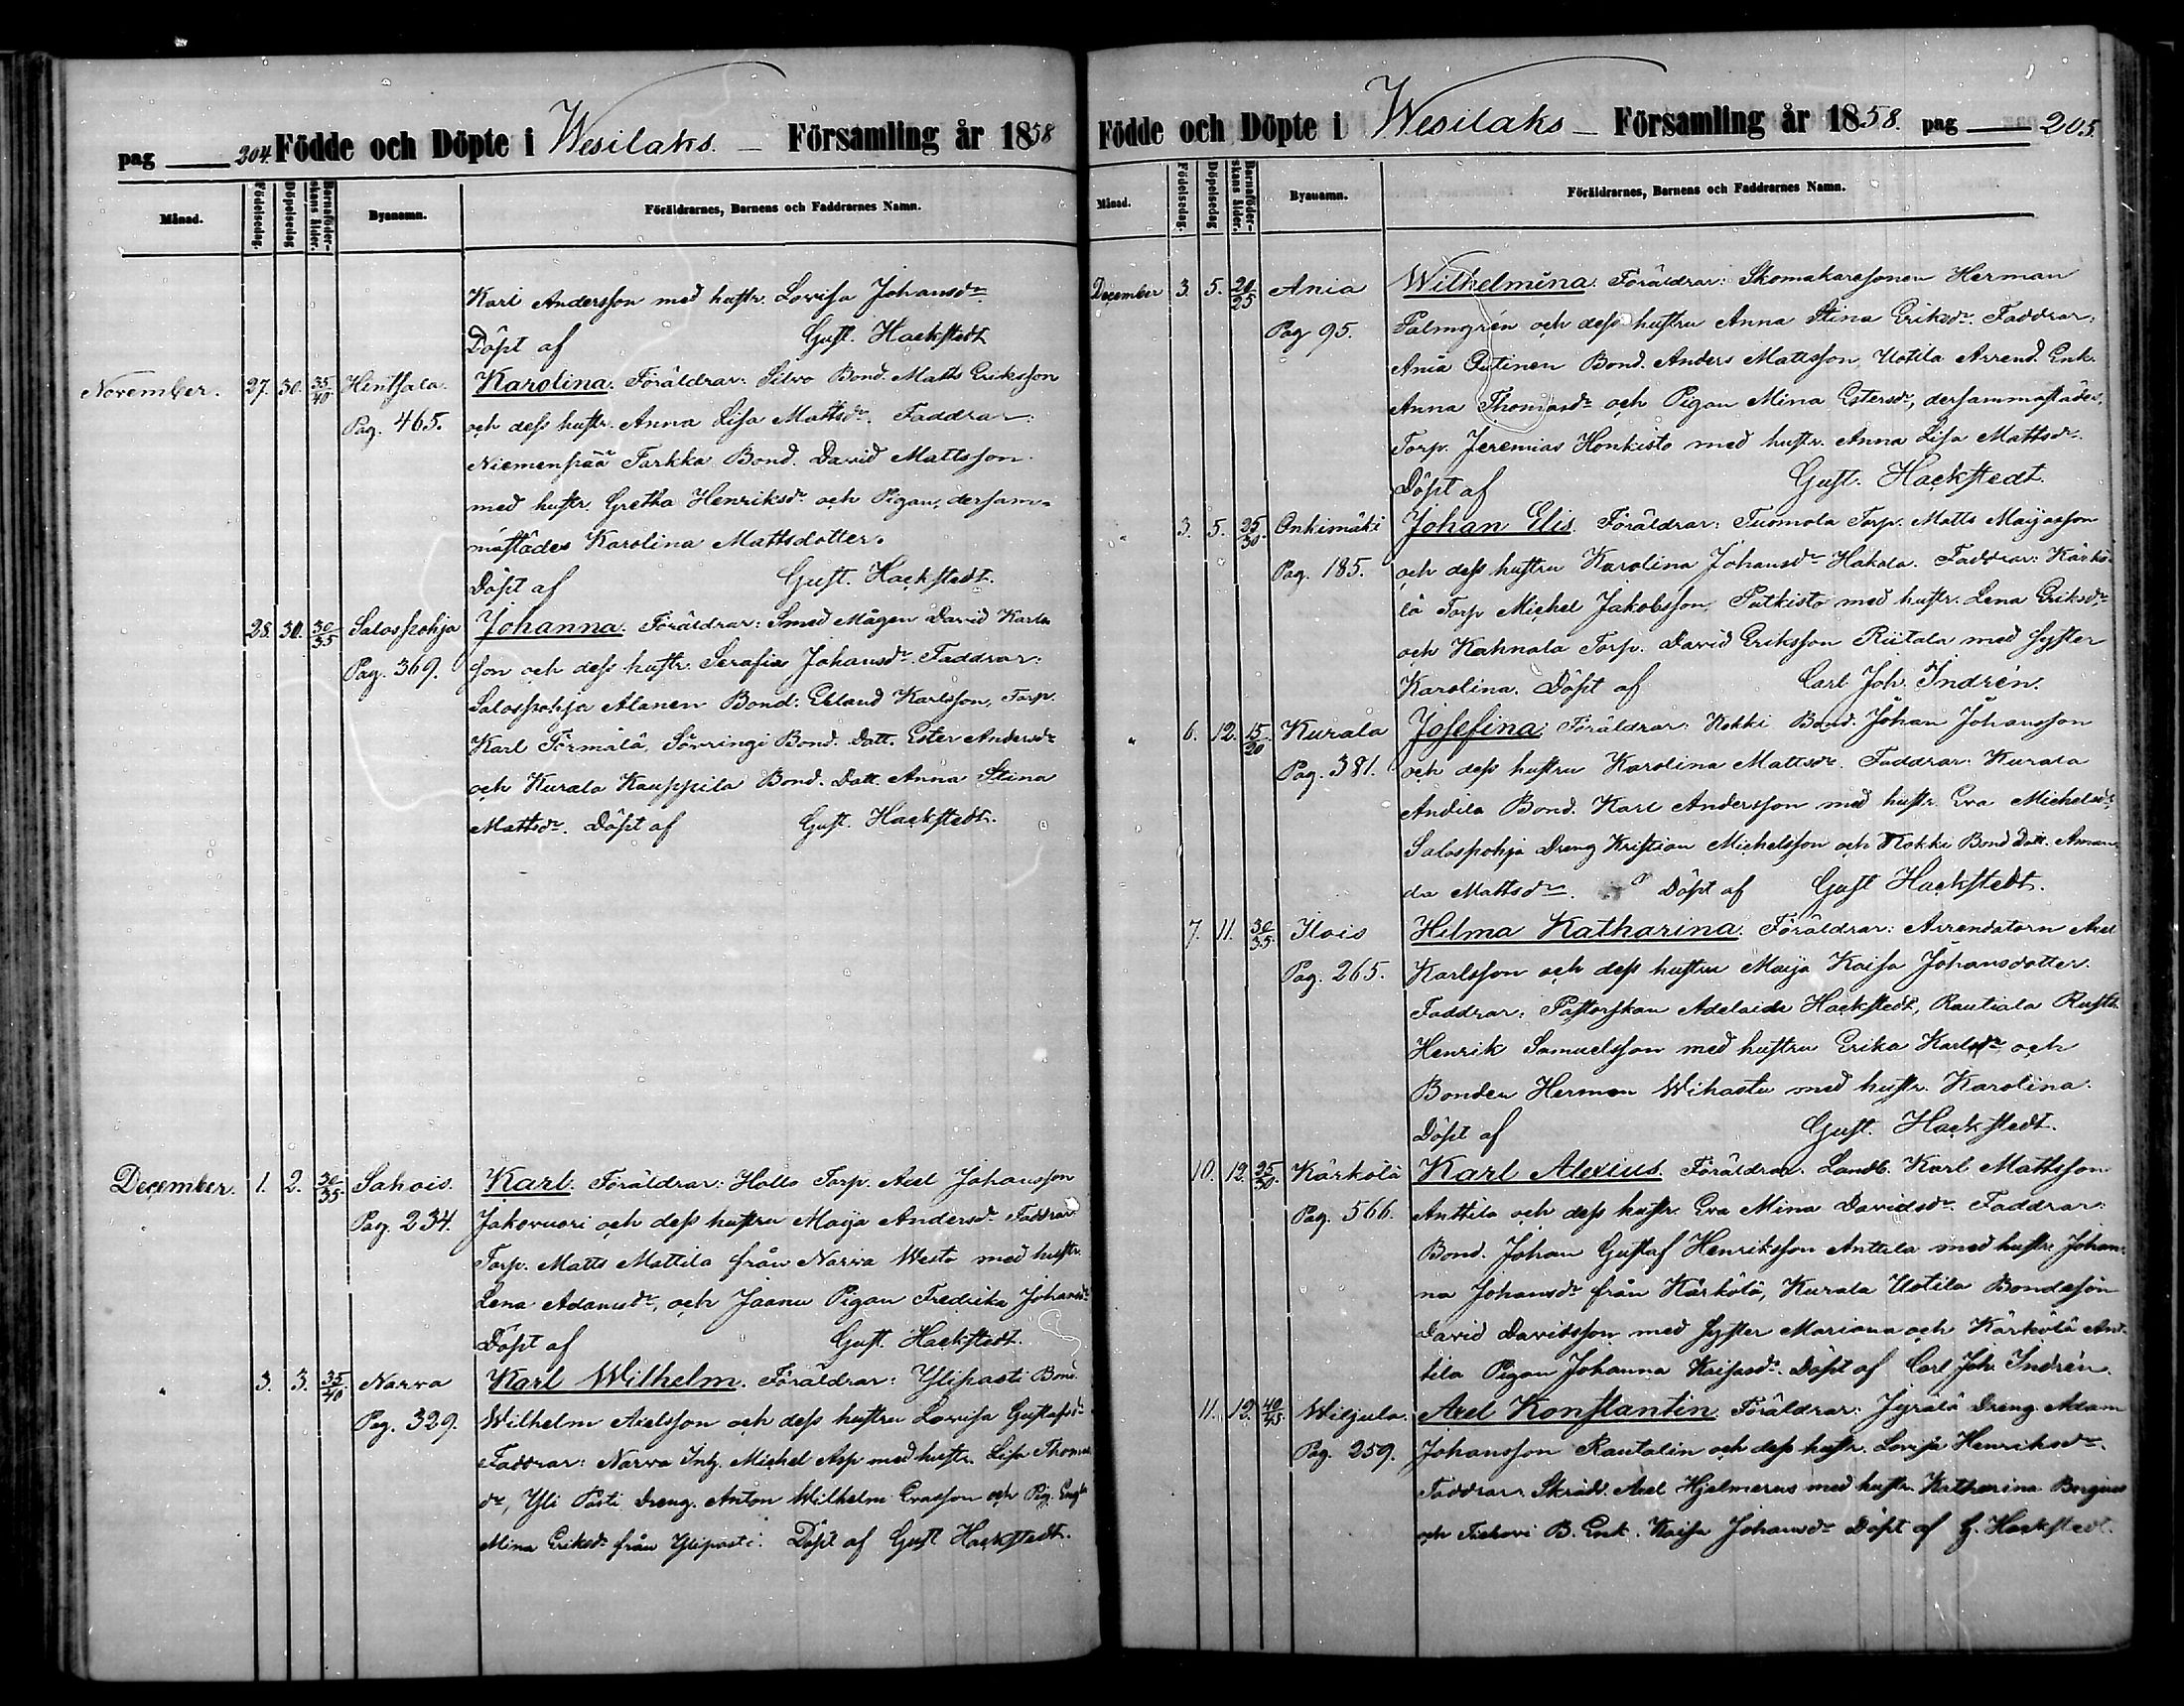 pag 204. Födde och Döpte i Wesilaks. Församling år 1858
Månad. Födelsedag. Döpelsedag Barnaföder-skans ålder. Byanamn. Föräldrarnes, Barnens och Faddrarnes Namn.
Karl Andersson med hustr. Lovisa Johansdr
Döpt af Gust. Hackstedt
November. 27. 30. 35/40 Hinsala. Karolina. Föräldrar: Silvo Bond. Matts Eriksson
Pag. 465. och dess hustr. Anna Lisa Mattsdr. Faddrar:
Niemenpää Tarkka Bond. David Mattsson
med hustr. Gretha Henriksdr och Pigan, dersam-
mastädes Karolina Mattsdotter.
Döpt af Gust. Hackstedt.
28. 30. 30/35 Salospohja Johanna. Föräldrar: Smed Mågen David Karls
Pag. 369. son och dess hustr. Serafia Johansdr. Faddrar:
Salospohja Alanen Bond: Erland Karlsson, Torp.
Karl Törmälä, Sorvingi Bond. Dott. Ester Andersdr
och Kurala Kauppila Bond. Dott. Anna Stina
Mattsdr. Döpt af Gust. Hackstedt.
December. 1. 2. 30/35 Sahois. Karl. Föräldrar: Hollo Torp. Axel Johansson
Pag. 234. Jakovuori och dess hustru Maija Andersdr. Faddrar
Torp. Matts Mattila från Narva Westo med hustr.
Lena Adamsdr, och Jaanu Pigan Fredrika Johansdr
Döpt af Gust. Hackstedt.
" 3. 3. 35/40 Narva Karl Wilhelm. Föräldrar: Ylipasti Bond.
Pag. 329. Wilhelm Axelsson och dess hustru Lovisa Gustafsdr
Faddrar: Narva Inh. Michel Asp med hustr. Lisa Thomas
dr, Yli Pasti Dreng. Anton Wilhelm Evasson och Pig. Engla
Mina Eriksdr från Ylipasti. Döpt af Gust Hackstedt.
Födde och Döpte i Wesilaks Församling år 1858. pag 205.
Månad. Födelsedag. Döpelsedag Barnaföder-skans ålder. Byanamn. Föräldrarnes, Barnens och Faddrarnes Namn.
December 3. 5. 20/25 Ania Wilhelmina. Föräldrar: Skomakaresonen Herman
Pag 95. Palmgrén och dess hustru Anna Stina Eriksdr. Faddrar:
Ania Putinen Bond. Anders Mattsson, Uotila Arrend. Enk.
Anna Thomasdr och Pigan Mina Estersdr, dersammastädes,
Torp. Jeremias Honkisto med hustr. Anna Lisa Mattsdr.
Döpt af Gust. Hackstedt.
" 3. 5. 25/30. Onkimäki Johan Elis. Föräldrar: Tuomola Torp. Matts Maijasson
Pag. 185. och dess hustru Karolina Johansdr Hakala. Faddrar: Kärkö-
lä Torp Michel Jakobsson Putkisto med hustr. Lena Eriksdr
och Kahnala Torp. David Eriksson Riitala med syster
Karolina. Döpt af Carl Joh. Indrén.
" 6. 12. 15/20 Kurala Josefina. Föräldrar: Kokki Bond. Johan Johansson
Pag. 381. och dess hustru Karolina Mattsdr. Faddrar: Kurala
Andila Bond. Karl Andersson med hustr. Eva Michelsdr,
Salospohja Dreng Kristian Michelsson och Kokki Bond Dott. Aman-
da Mattsdr. Döpt af Gust Hackstedt.
7. 11. 30/35. Ilois Hilma Katharina. Föräldrar: Arrendatorn Axel
Pag. 265. Karlsson och dess hustru Maija Kaisa Johansdotter.
Faddrar: Pastorskan Adelaide Hackstedt, Rautiala Rusth.
Henrik Samuelsson med hustru Erika Karlsdr och
Bonden Herman Wihastu med hustr. Karolina.
Döpt af Gust. Hackstedt.
10. 12. 25/30. Kärkölä Karl Alexius. Föräldrar. Landb. Karl Mattsson
Pag. 566. Anttila och dess hustr. Eva Mina Davidsdr. Faddrar:
Bond. Johan Gustaf Henriksson Anttila med hustru Johan-
na Johansdr från Kärkölä, Kurala Uotila Bondeson
David Davidsson med syster Mariana och Kärkölä Ant-
tila Pigan Johanna Kaisasdr. Döpt af Carl Joh. Indrén.
11. 12. 40/45 Wiljula. Axel Konstantin. Föräldrar: Jyrälä Dreng Adam
Pag. 259. Johansson Rautalin och dess hustr. Lovisa Henriksdr.
Faddrar: Skrädd. Axel Hjelmerus med hustr. Katharina Bergius
och B. Enk. Kaisa Johansdr Döpt af G. Hackstedt.